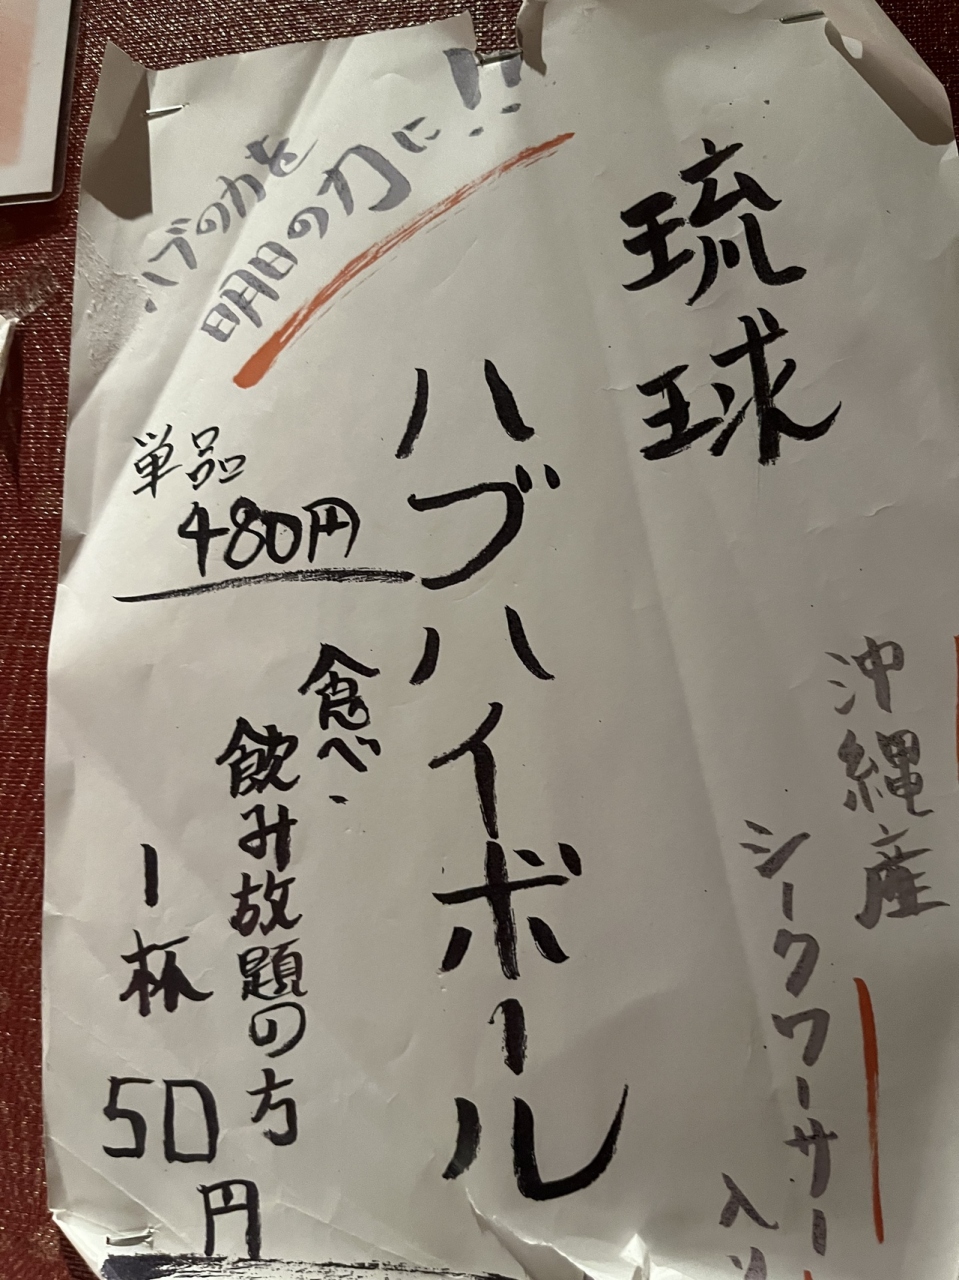 沖縄産
シークワーサー
入り
琉球
ハブハイボール
ハブの力を
明日の力に!!
単品
480円
食べ・
飲み放題の方
1杯
50円